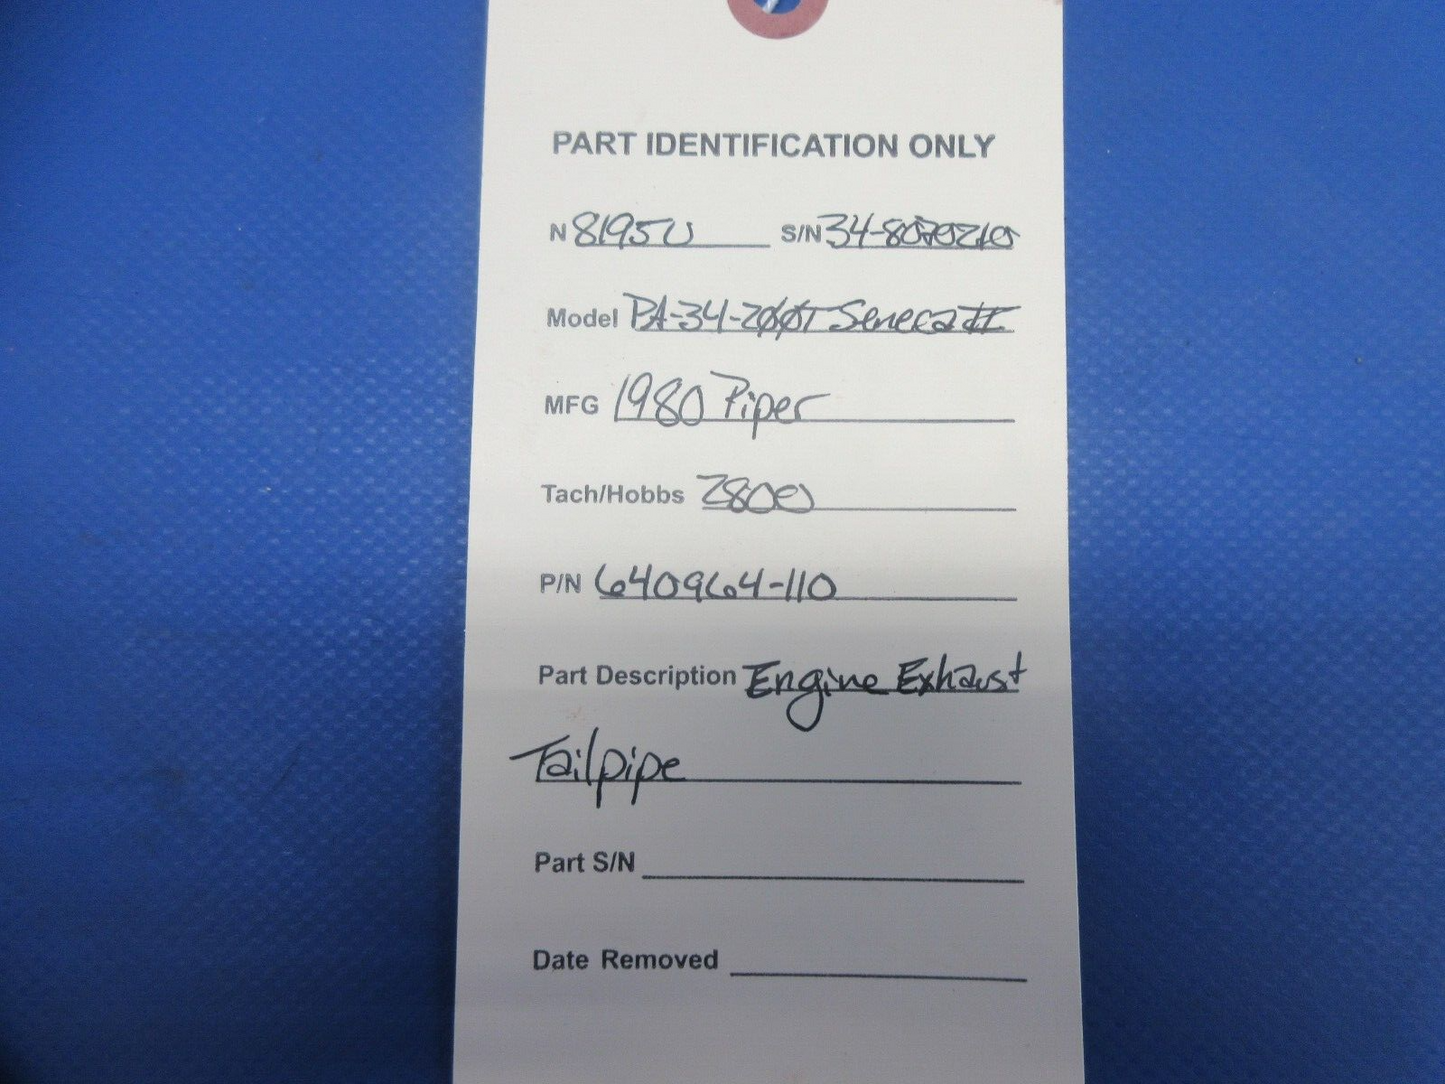 PART IDENTIFICATION ONLY
N 8195U S/N 34-8070210
Model PA-34-200T Seneca II
MFG 1980 Piper
Tach/Hobbs 2800
P/N 640964-110
Part Description Engine Exhaust
Tailpipe
Part S/N
Date Removed